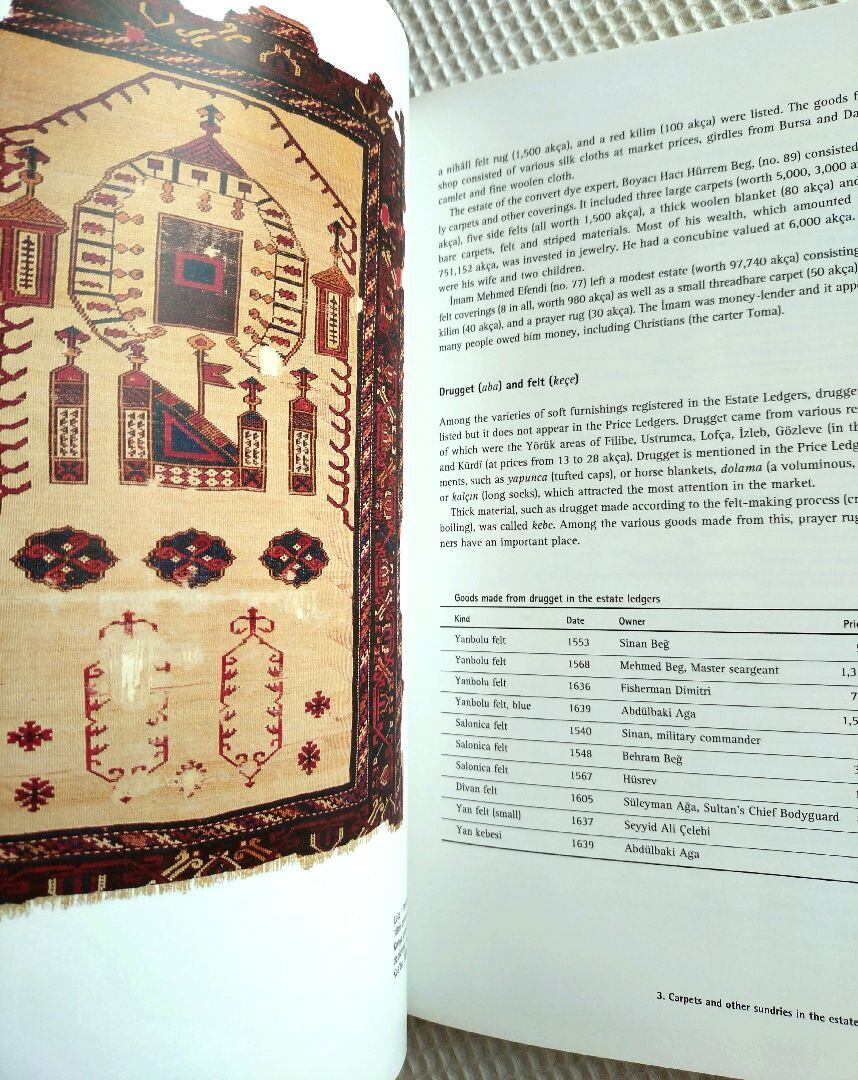 a nihâlî felt rug (1,500 akça), and a red kilim (100 akça) were listed. The goods
shop consisted of various silk cloths at market prices, girdles from Bursa and
camlet and fine woolen cloth.
The estate of the convert dye expert, Boyacı Hacı Hürrem Beg, (no. 89) consisted
ly carpets and other coverings. It included three large carpets (worth 5,000, 3,000
akça), five side felts (all worth 1,500 akça), a thick woolen blanket (80 akça) and
bare carpets, felt and striped materials. Most of his wealth, which amounted
751,152 akça, was invested in jewelry. He had a concubine valued at 6,000 akça.
were his wife and two children.
İmam Mehmed Efendi (no. 77) left a modest estate (worth 97,740 akça) consisting
felt coverings (8 in all, worth 980 akça) as well as a small threadbare carpet (50 akça)
kilim (40 akça), and a prayer rug (30 akça). The İmam was money-lender and it
many people owed him money, including Christians (the carter Toma).
Drugget (aba) and felt (keçe)
Among the varieties of soft furnishings registered in the Estate Ledgers,
listed but it does not appear in the Price Ledgers. Drugget came from various
of which were the Yörük areas of Filibe, Ustrumca, Lofça, İzleb, Gözleve (in
and Kürdî (at prices from 13 to 28 akça). Drugget is mentioned in the Price
ments, such as yapunca (tufted caps), or horse blankets, dolama (a voluminous,
or kalçın (long socks), which attracted the most attention in the market.
Thick material, such as drugget made according to the felt-making process
boiling), was called kebe. Among the various goods made from this, prayer
ners have an important place.
Goods made from drugget in the estate ledgers
Kind Date Owner
Yanbolu felt 1553 Sinan Beğ
Yanbolu felt 1568 Mehmed Beg, Master seargeant
Yanbolu felt 1636 Fisherman Dimitri
Yanbolu felt, blue 1639 Abdülbaki Aga
Salonica felt 1540 Sinan, military commander
Salonica felt 1548 Behram Beğ
Salonica felt 1567 Hüsrev
Dîvan felt 1605 Süleyman Ağa, Sultan's Chief Bodyguard
Yan felt (small) 1637 Seyyid Ali Çelebi
Yan kebesi 1639 Abdülbaki Aga
3. Carpets and other sundries in the estate